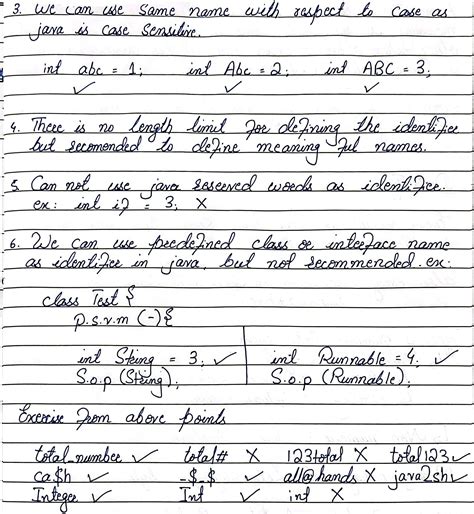 3. We can use same name with respect to case as
java is case sensitive.
int abc = 1; int Abc = 2; int ABC = 3;
✓ ✓ ✓
4. There is no length limit for defining the identifier
but recomended to define meaning ful names.
5. Can not use java reserved words as identifier.
ex: int if = 3; X
6. We can use predefined class or interface name
as identifier in java, but not recommended. ex:
class Test {
p.s.v.m (-) {
int String = 3; ✓ int Runnable = 4; ✓
S.o.p (String); S.o.p (Runnable);
Exercise from above points
total_number ✓ total# X 123total X total123 ✓
ca$h ✓ _$_$ ✓ all@hands X java2sh ✓
Integer ✓ Int ✓ int X